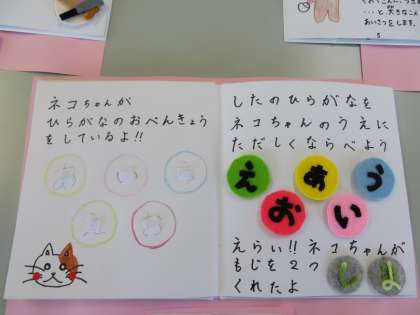 ネコちゃんが
ひらがなのおべんきょう
をしているよ!!
したのひらがなを
ネコちゃんのうえに
ただしくならべよう
え
あ
う
お
い
えらい!! ネコちゃんが
もじを2つ
くれたよ
し
よ
あいさつをします。
5